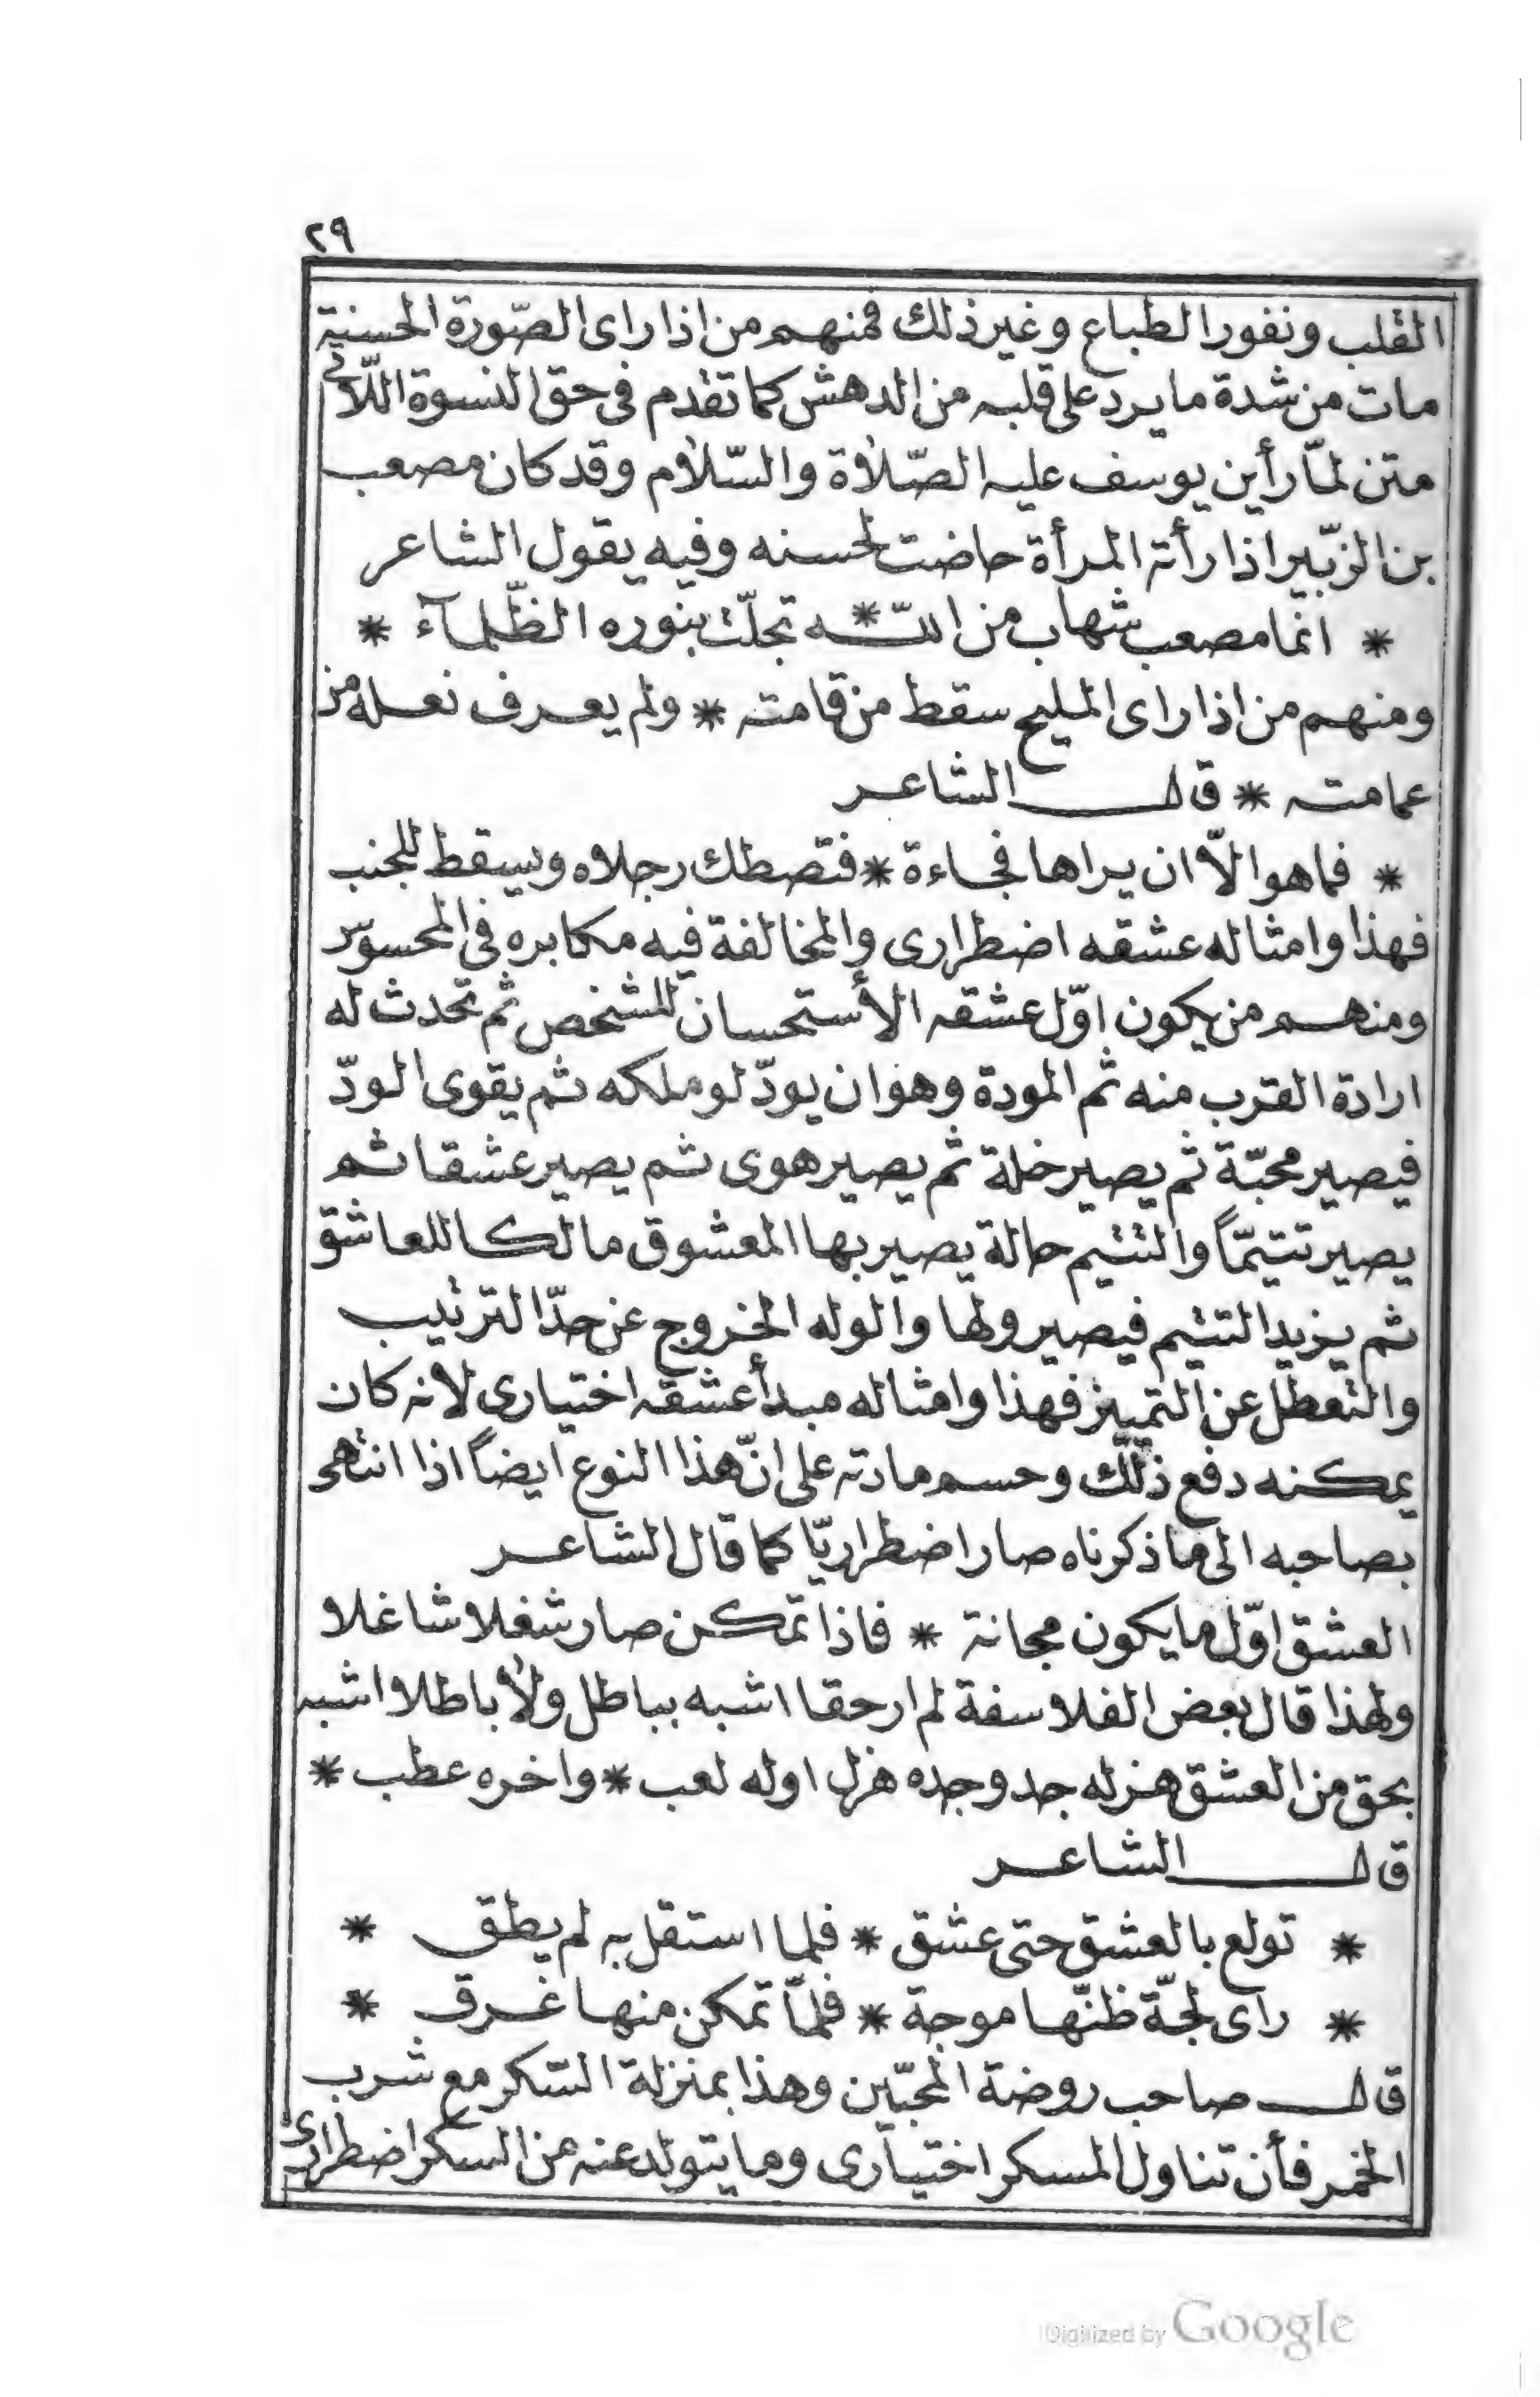 ٢٩
القلب ونفور الطباع وغير ذلك فمنهم من اذا راى الصّورة الحسنية
مات من شدة ما يرد على قلبه من الدهش كما تقدم فى حق النسوة اللّاتى
متن لمّا رأين يوسف عليه الصّلاة والسّلام وقد كان مصعب
بن الزبّير اذا رأته المرأة حاضت لحسنه وفيه يقول الشاعر
* انما مصعب شهاب من اللّه * تجلّت بنوره الظّلمآء *
ومنهم من اذا راى المليح سقط من قامته * ولم يعرف نعله من
عمامته * قال الشاعر
* فما هو الّا ان يراها فجاءة * فتصطك رجلاه ويسقط للجنب
فهذا وامثاله عشقه اضطرارى والمخالفة فيه مكابره فى المحسوس
ومنهم من يكون اوّل عشقه الأستحسان للشخص ثم تحدث له
ارادة القرب منه ثم المودة وهو ان يودّ لو ملكه ثم يقوى الودّ
فيصير محبّة ثم يصير خلة ثم يصير هوى ثم يصير عشقا ثم
يصير تتيمّاً والتتيم حالة يصير بها المعشوق مالكا للعاشق
ثم يزيد التتيم فيصير ولها والوله الخروج عن حدّ الترتيب
والتعطل عن التمييز فهذا وامثاله مبدأ عشقه اختيارى لانه كان
يمكنه دفع ذلك وحسم مادته على انّ هذا النوع ايضاً اذا انتهى
بصاحبه الى ما ذكرناه صار اضطراريّا كما قال الشاعر
العشق اوّل ما يكون مجانة * فاذا تمكن صار شغلا شاغلا
ولهذا قال بعض الفلاسفة لم ار حقا اشبه بباطل ولا باطلا اشبه
بحق من العشق هزله جد وجده هزل اوله لعب * واخره عطب *
قال الشاعر
* تولع بالعشق حتى عشق * فلما استقل به لم يطق *
* راى لجّة ظنّها موجة * فلمّا تمكن منها غرق *
قال صاحب روضة المحبّين وهذا بمنزلة السّكر مع شرب
الخمر فأن تناول المسكر اختيارى وما يتولد عنه من السكر اضطرارى
Digitized by Google